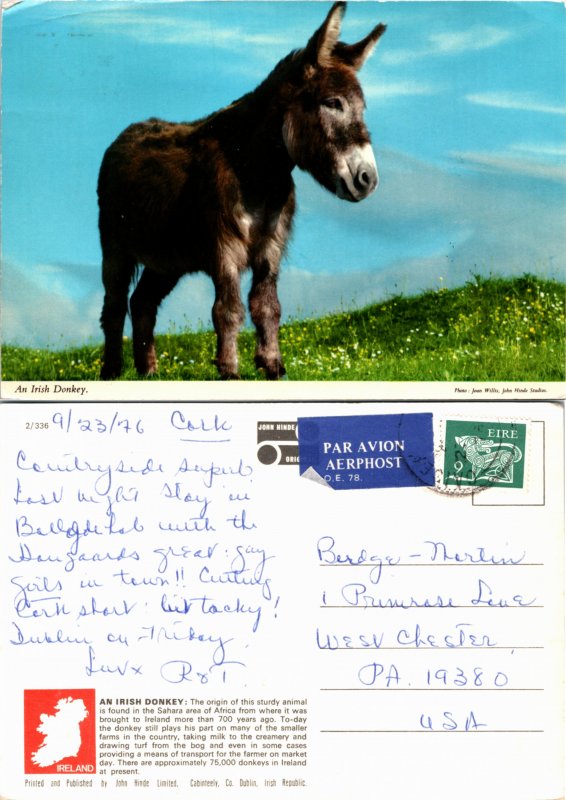 An Irish Donkey.
Photo: Joan Willis, John Hinde Studios.
2/336
9/23/76 Cork
JOHN HINDE
ORIG
PAR AVION
AERPHOST
O.E. 78.
EIRE
9
Countryside superb
Last night stay in
with the
great: gay
girls in town!! Cutting
Cork short: bit tacky!
Dublin on Friday.
Luvx R&T
Berdge-Mortin
1 Primrose Lane
West Chester
PA. 19380
USA
AN IRISH DONKEY: The origin of this sturdy animal
is found in the Sahara area of Africa from where it was
brought to Ireland more than 700 years ago. To-day
the donkey still plays his part on many of the smaller
farms in the country, taking milk to the creamery and
drawing turf from the bog and even in some cases
providing a means of transport for the farmer on market
day. There are approximately 75,000 donkeys in Ireland
at present.
IRELAND
Printed and Published by John Hinde Limited, Cabinteely, Co. Dublin, Irish Republic.